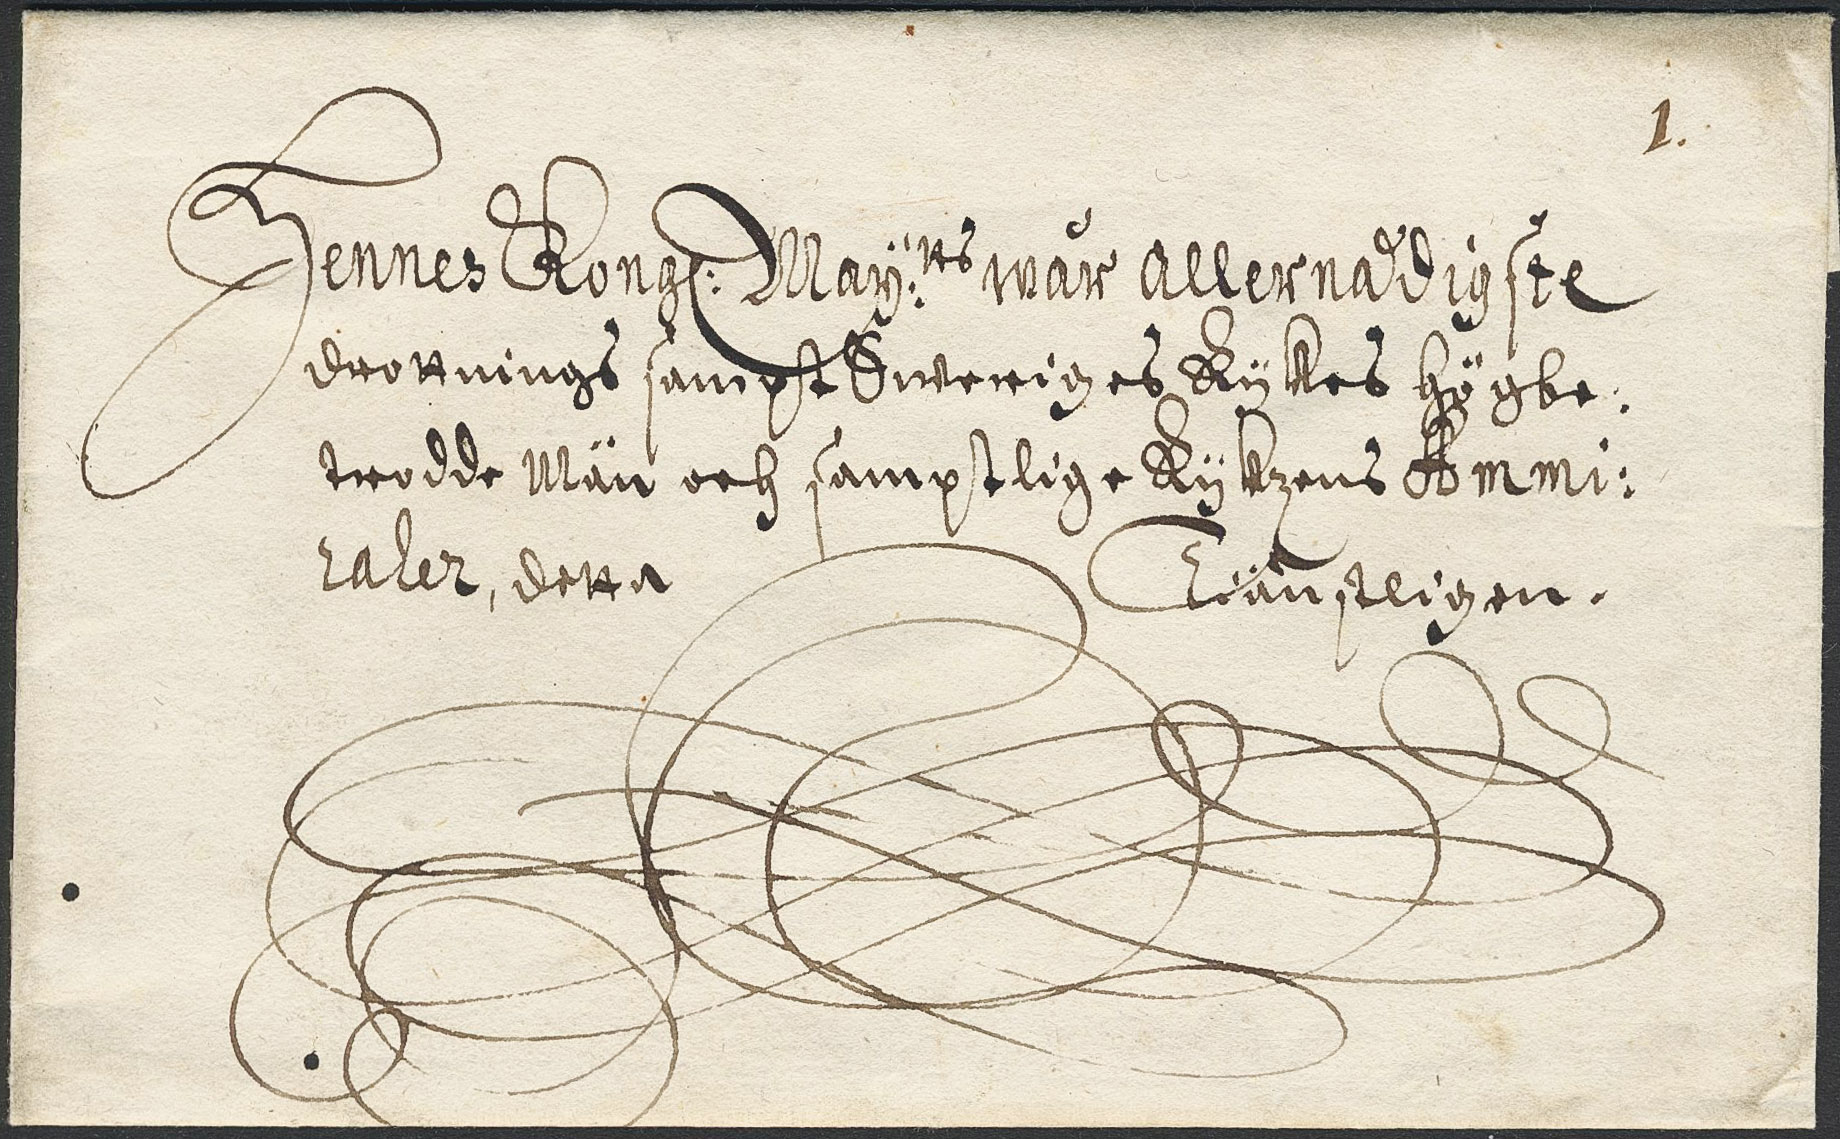 1.
Hennes Kongl: May:tts wår allernådigste
drottnings sampt Sweriges Rijkes högbe:
trodde Män och sampstlige Rijkzens Ammi:
raler, detta Tiänstligen.